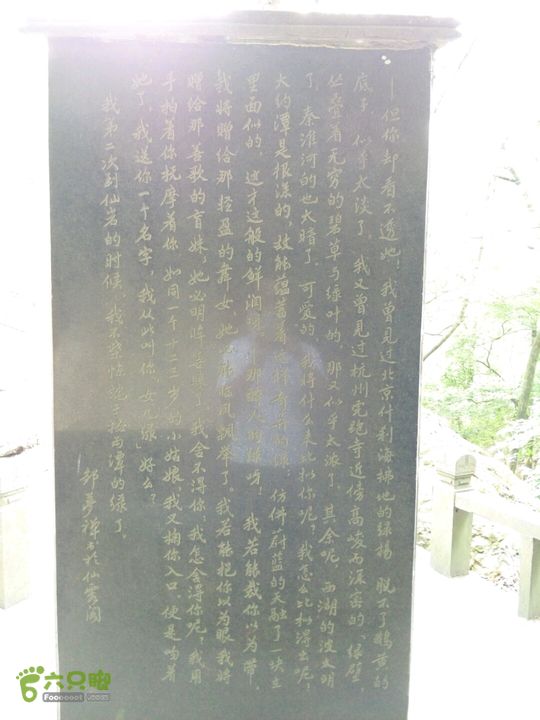 ——但你却看不透她!我曾见过北京什刹海拂地的绿杨,脱不了鹅黄的
底子,似乎太淡了。我又曾见过杭州虎跑寺近傍高峻而深密的“绿壁”
丛叠着无穷的碧草与绿叶的,那又似乎太浓了。其余呢,西湖的波太明
了,秦淮河的也太暗了。可爱的,我将什么来比拟你呢?我怎么比拟得出呢?
大约潭是很深的,故能蕴蓄着这样奇异的绿,仿佛蔚蓝的天融了一块在
里面似的,这才这般的鲜润呀。那醉人的绿呀!我若能裁你以为带,
我将赠给那轻盈的舞女,她必能临风飘举了。我若能挹你以为眼,我将
赠给那善歌的盲妹,她必明眸善睐了。我舍不得你;我怎舍得你呢?我用
手拍着你,抚摩着你,如同一个十二三岁的小姑娘。我又掬你入口,便是吻着
她了。我送你一个名字,我从此叫你“女儿绿”,好么?
我第二次到仙岩的时候,我不禁惊诧于梅雨潭的绿了。
邹梦禅书于仙岩阁
六只脚
Foooooot.com